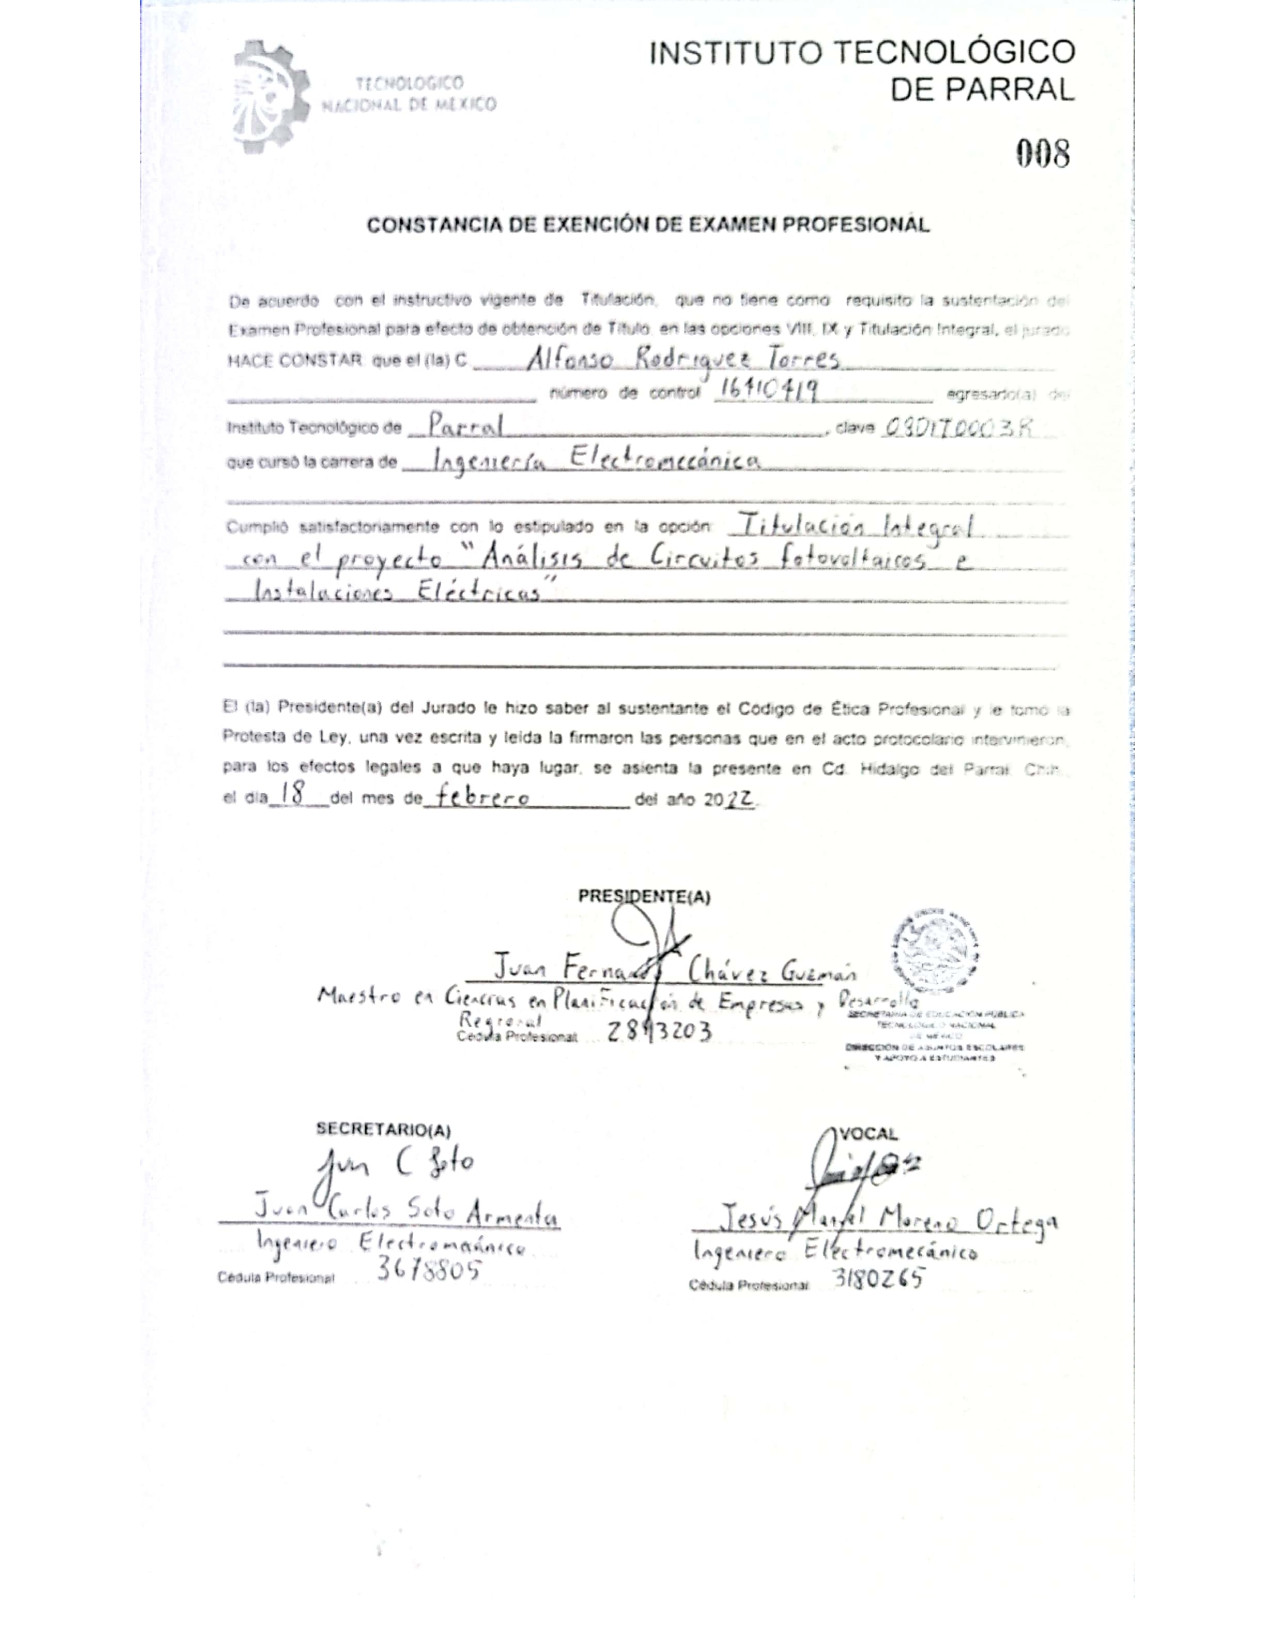 TECNOLÓGICO
NACIONAL DE MÉXICO
INSTITUTO TECNOLÓGICO
DE PARRAL
008
CONSTANCIA DE EXENCIÓN DE EXAMEN PROFESIONAL
De acuerdo con el instructivo vigente de Titulación, que no tiene como requisito la sustentación del
Examen Profesional para efecto de obtención de Título, en las opciones VIII, IX y Titulación Integral, el jurado
HACE CONSTAR que el (la) C Alfonso Rodríguez Torres
número de control 16410419 egresado(a) del
Instituto Tecnológico de Parral, clave 08DIT0003R
que cursó la carrera de Ingeniería Electromecánica
Cumplió satisfactoriamente con lo estipulado en la opción Titulación Integral
con el proyecto "Análisis de Circuitos fotovoltaicos e
Instalaciones Eléctricas"
El (la) Presidente(a) del Jurado le hizo saber al sustentante el Código de Ética Profesional y le tomo la
Protesta de Ley, una vez escrita y leída la firmaron las personas que en el acto protocolario intervinieron,
para los efectos legales a que haya lugar, se asienta la presente en Cd. Hidalgo del Parral, Chih.
el día 18 del mes de febrero del año 2022.
PRESIDENTE(A)
Juan Fernando Chávez Guzmán
Maestro en Ciencias en Planificación de Empresas y Desarrollo
Regional
Cédula Profesional 2843203
SECRETARIA DE EDUCACIÓN PÚBLICA
TECNOLÓGICO NACIONAL
DE MÉXICO
DIRECCIÓN DE ASUNTOS ESCOLARES
Y APOYO A ESTUDIANTES
SECRETARIO(A)
Juan C Soto
Juan Carlos Soto Armenta
Ingeniero Electromecánico
Cédula Profesional 3678805
VOCAL
Jesús Manuel Moreno Ortega
Ingeniero Electromecánico
Cédula Profesional 3180265